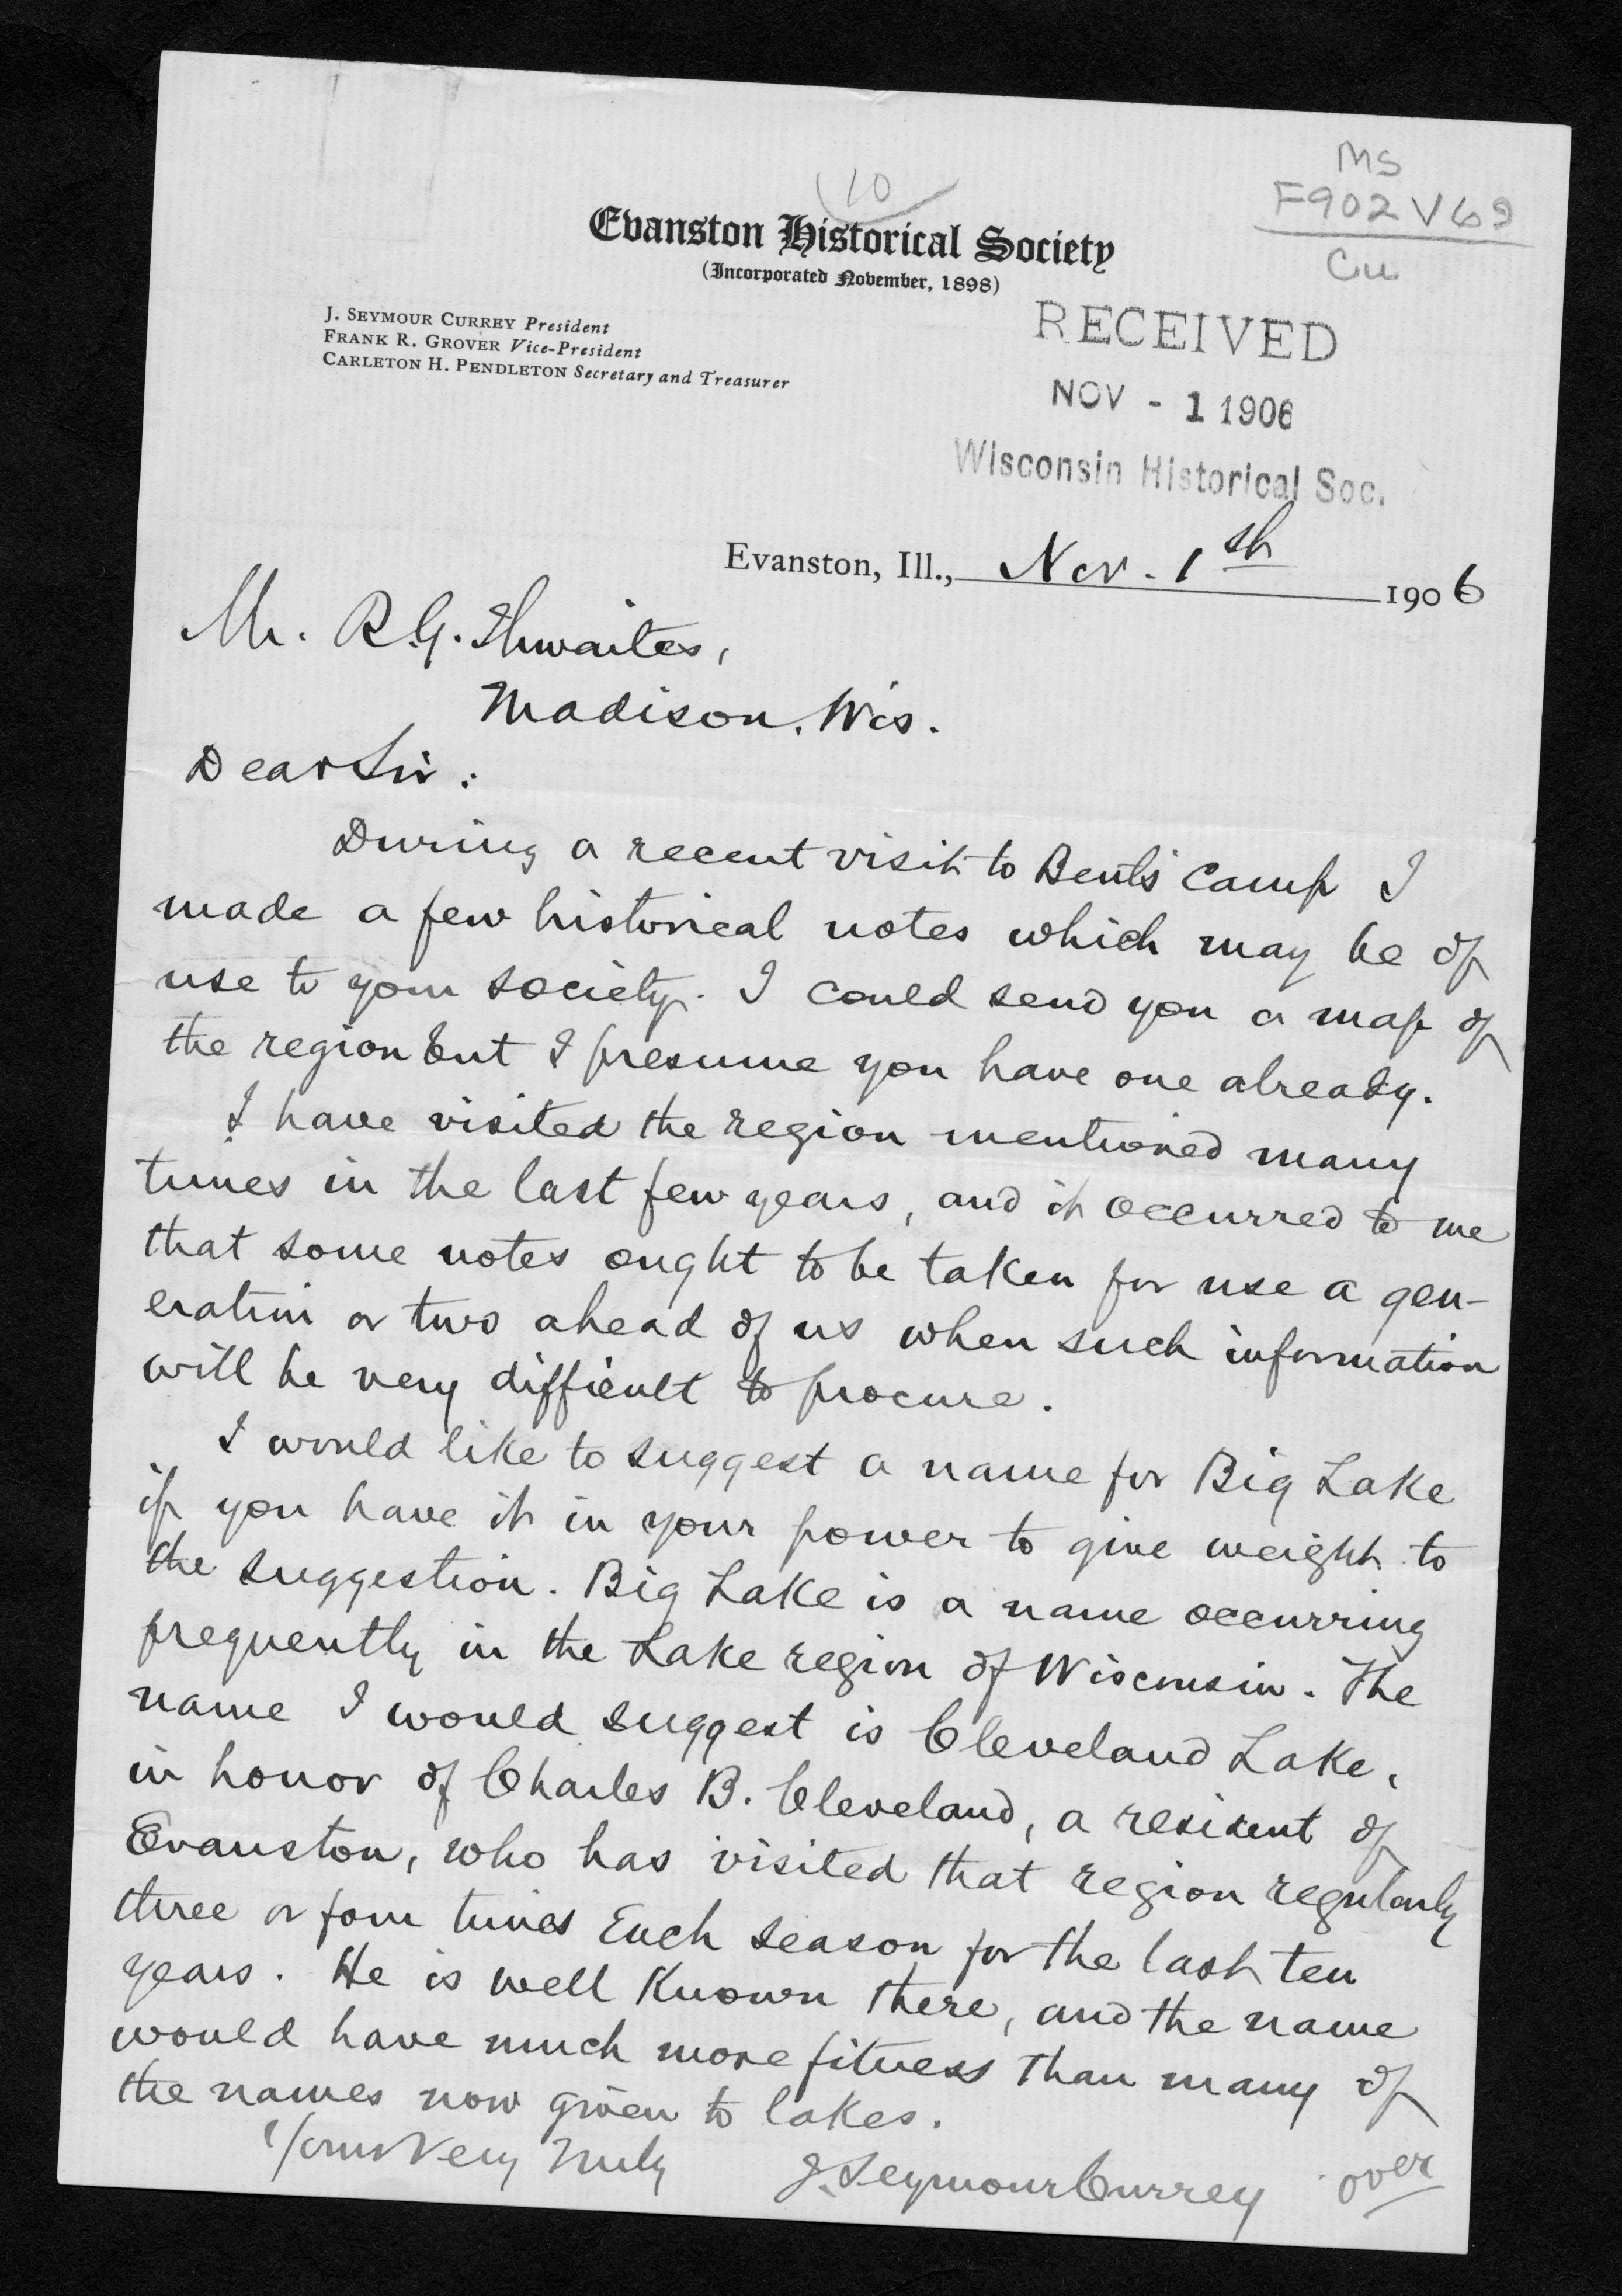 (10
MS
F902 V69
Cu
Evanston Historical Society
(Incorporated November, 1898)
J. SEYMOUR CURREY President
FRANK R. GROVER Vice-President
CARLETON H. PENDLETON Secretary and Treasurer
RECEIVED
NOV - 1 1906
Wisconsin Historical Soc.
Evanston, Ill., Nov. 1st 1906
Mr. R.G. Thwaites,
Madison, Wis.
Dear Sir:
During a recent visit to Bent's Camp I
made a few historical notes which may be of
use to your society. I could send you a map of
the region but I presume you have one already.
I have visited the region mentioned many
times in the last few years, and it occurred to me
that some notes ought to be taken for use a gen-
eration or two ahead of us when such information
will be very difficult to procure.
I would like to suggest a name for Big Lake
if you have it in your power to give weight to
the suggestion. Big Lake is a name occurring
frequently in the Lake region of Wisconsin. The
name I would suggest is Cleveland Lake,
in honor of Charles B. Cleveland, a resident of
Evanston, who has visited that region regularly
three or four times Each season for the last ten
years. He is well Known there, and the name
would have much more fitness than many of
the names now given to lakes.
Yours Very Truly
J. Seymour Currey
over